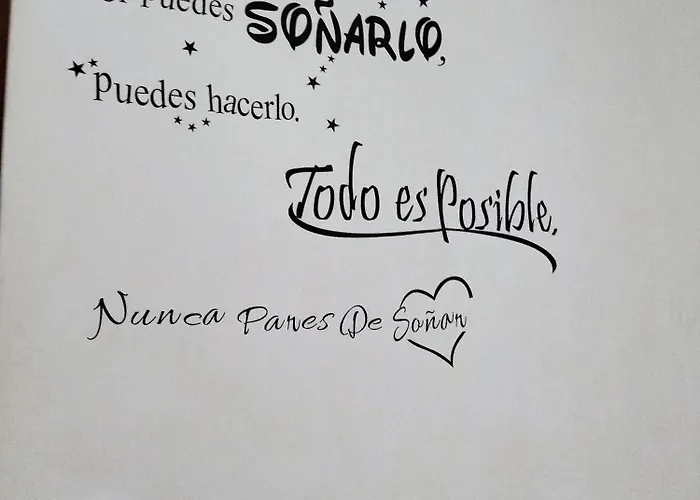 puedes SOÑARLO,
Puedes hacerlo.
Todo es Posible.
Nunca Pares De Soñar